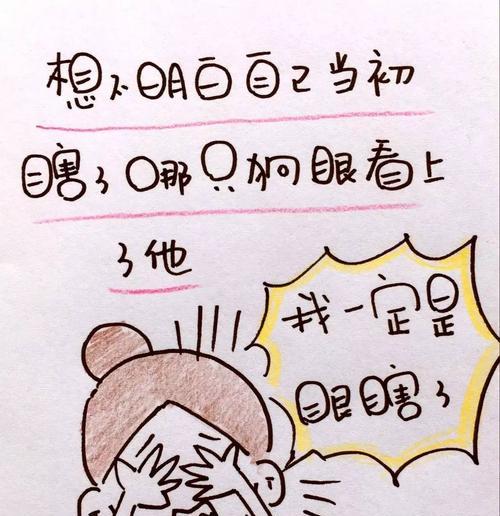 想不明白自己当初
瞎了哪只狗眼看上
了他
我一定是
眼瞎了